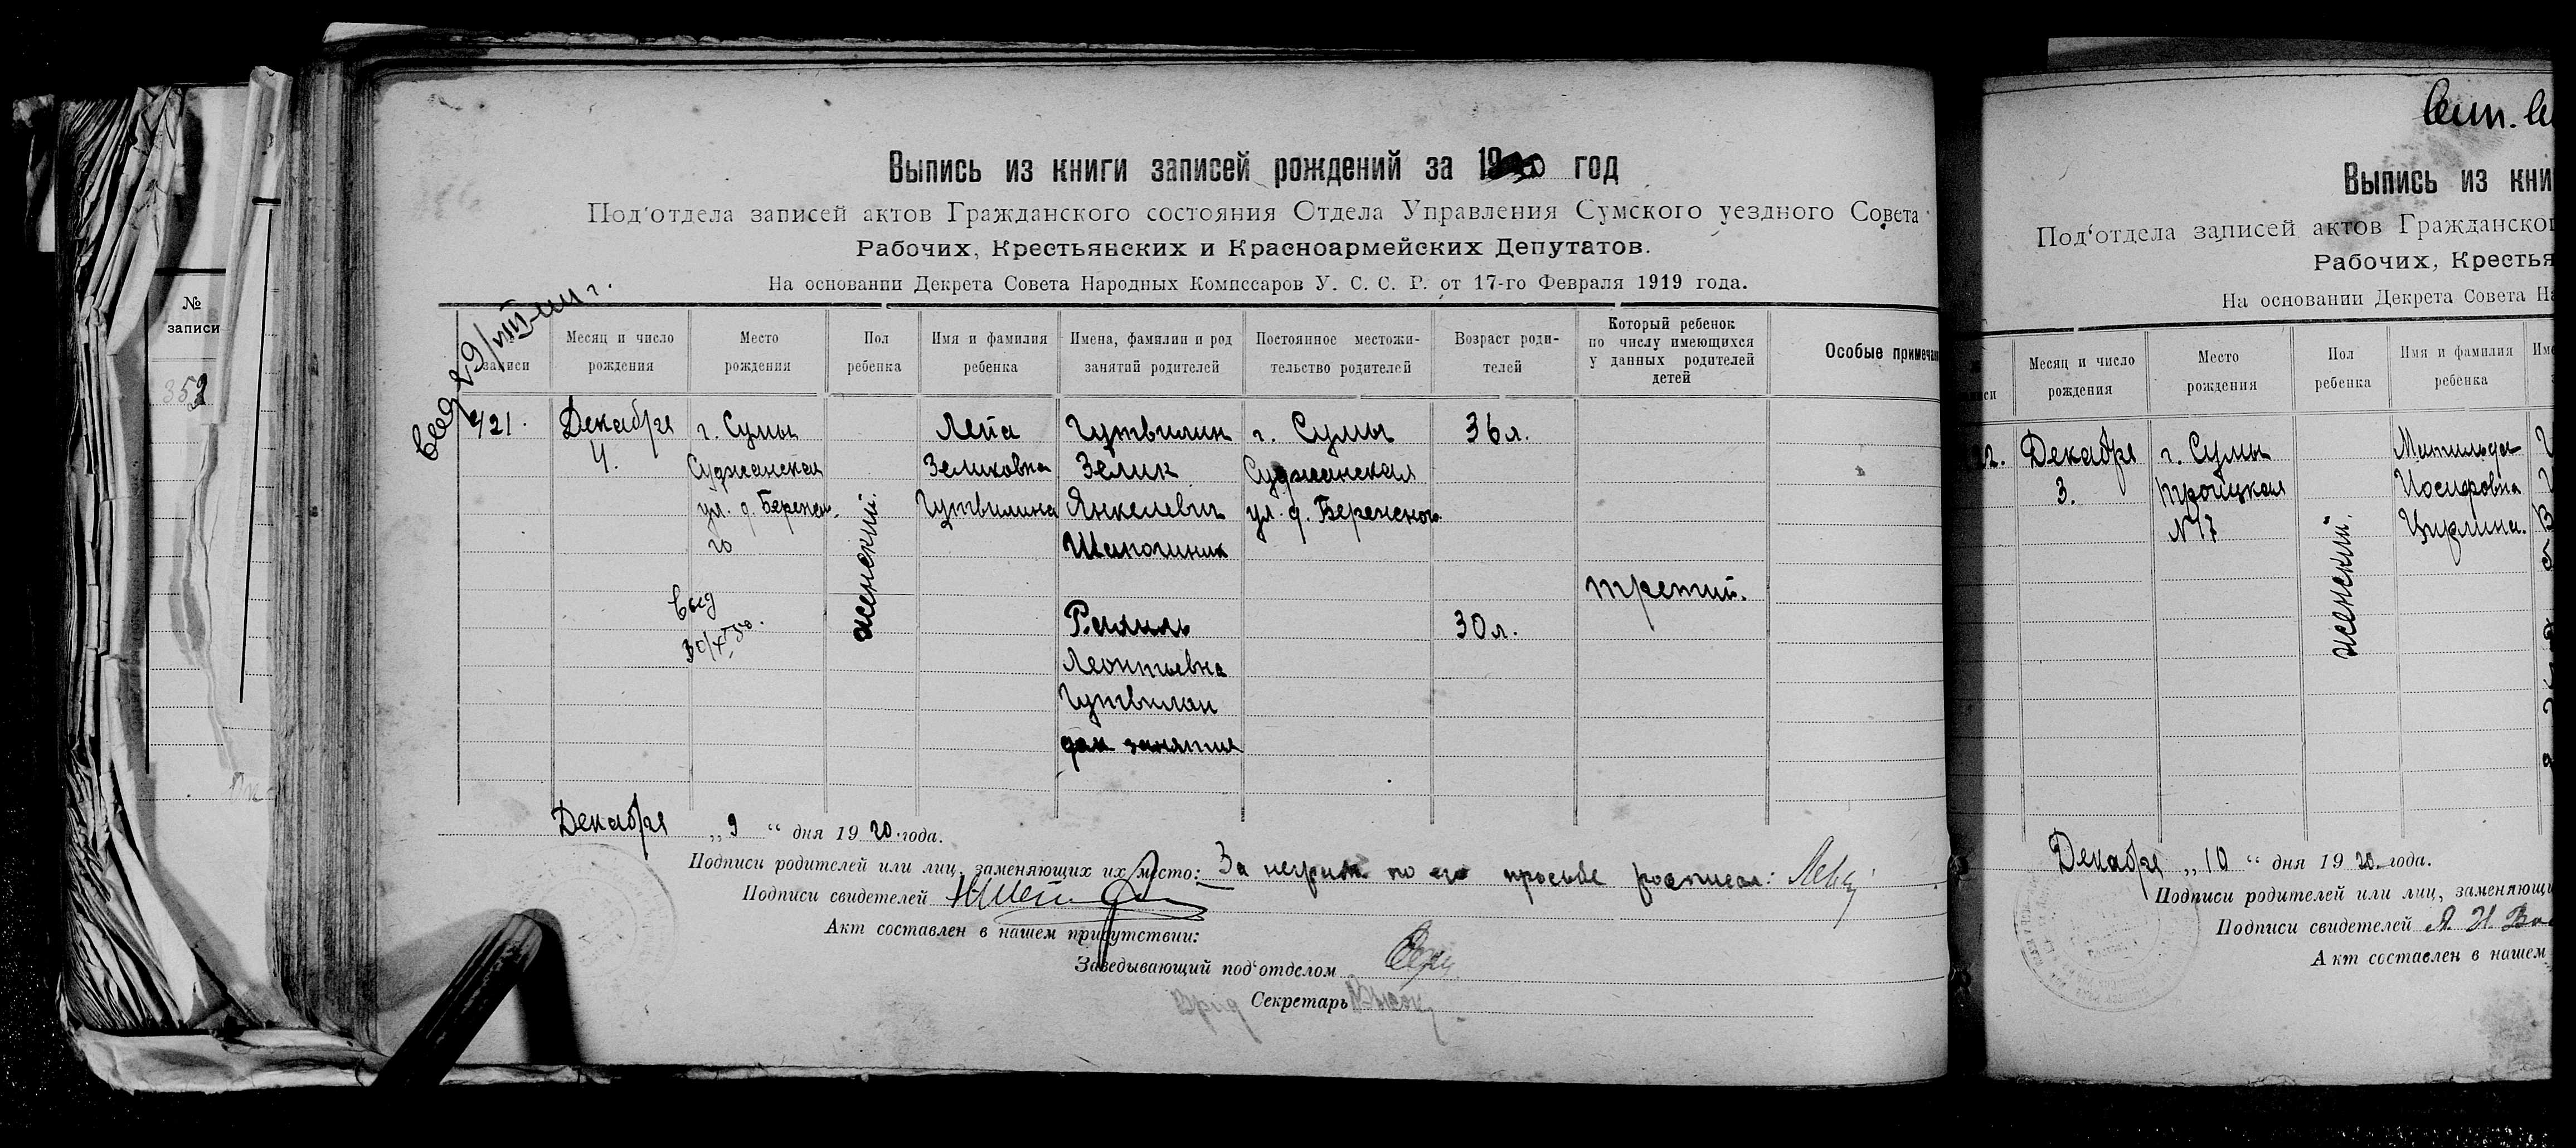 №
записи
353
Выпись из книги записей рождений за 1920 год
Под'отдела записей актов Гражданского состояния Отдела Управления Сумского уездного Совета
Рабочих, Крестьянских и Красноармейских Депутатов.
На основании Декрета Совета Народных Комиссаров У. С. С. Р. от 17-го Февраля 1919 года.
записи
Месяц и число рождения
Место рождения
Пол ребенка
Имя и фамилия ребенка
Имена, фамилии и род занятий родителей
Постоянное местожительство родителей
Возраст родителей
Который ребенок по числу имеющихся у данных родителей детей
Особые примечан
421.
Декабря
4.
г. Сумы
Суджанская
ул. д. Беренско
го
выд
женский.
Лейа
Зеликовна
Гутвилина
Гутвилин
Зелик
Янкелевич
Шапошник
Леонтьевна
Гутвилан
дом занятия
г. Сумы
Суджанская
ул. д. Беренского
36 л.
30 л.
третий.
Декабря „ 9 “ дня 1920 года.
Подписи родителей или лиц, заменяющих их место: За неграм по его просьбе росписал:
Подписи свидетелей
Акт составлен в нашем присутствии:
Заведывающий под'отделом
Врид Секретарь
Выпись из кни
Под'отдела записей актов Гражданског
Рабочих, Крестья
На основании Декрета Совета На
Месяц и число рождения
Место рождения
Пол ребенка
Имя и фамилия ребенка
Декабря
3.
г. Сумы
Троицкая
№ 17
женский.
Матильда
Иосифовна
Цирлина.
Декабря „ 10 “ дня 1920 года.
Подписи родителей или лиц, заменяющи
Подписи свидетелей
Акт составлен в нашем